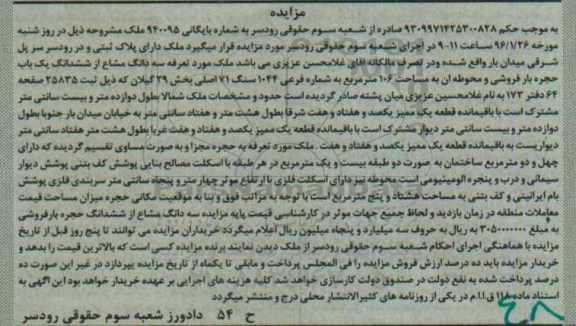 مزایده
به موجب حکم ۹۳۰۹۹۷۱۴۲۵۳۰۰۸۲۸ صادره از شعبه سوم حقوقی رودسر به شماره بایگانی ۹۴۰۰۹۵ ملک مشروحه ذیل در روز شنبه
مورخه ۹۶/۱/۲۶ ساعت ۱۱-۹ در اجرای شعبه سوم حقوقی رودسر مورد مزایده قرار میگیرد ملک دارای پلاک ثبتی و در رودسر سر پل
شرقی میدان بار واقع شده ودر تصرف مالکانه آقای غلامحسن عزیزی می باشد ملک مورد تعرفه سه دانگ مشاع از ششدانگ یک باب
حجره بار فروشی و محوطه ان به مساحت ۱۰۶ مترمربع به شماره فرعی ۱۰۴۴ سنگ ۷۱ اصلی بخش ۲۹ گیلان که ذیل ثبت ۲۵۸۳۵ صفحه
۶۴ دفتر ۱۷۳ به نام غلامحسین عزیزی میان پشته صادر گردیده است حدود و مشخصات ملک شمالا بطول دوازده متر و بیست سانتی متر
مشترک است با باقیمانده قطعه یک ممیز یکصد و هفتاد و هفت شرقا بطول هشت متر و هفتاد سانتی متر به خیابان میدان بار جنوبا بطول
دوازده متر و بیست سانتی متر دیوار مشترک است با باقیمانده قطعه یک ممیز یکصد و هفتاد و هفت غربا بطول هشت متر هفتاد سانتی متر
دیواریست به باقیمانده قطعه یک ممیز یکصد و هفتاد و هفت . ملک مورد تعرفه به حجره مجزا و به صورت مساوی تقسیم گردیده که دارای
چهل و دو مترمربع ساختمان به صورت دو طبقه بیست و یک مترمربع در هر طبقه با اسکلت مصالح بنایی پوشش کف بتنی پوشش دیوار
سیمانی و درب و پنجره الومینیومی است محوطه نیز دارای اسکلت فلزی با ارتفاع موثر چهار متر و پنجاه سانتی متر سربندی فلزی پوشش
بام ایرانیتی و کف بتنی به مساحت هشتاد و پنج مترمربع است با توجه به مراتب فوق و بنا به موقعیت مکانی حجره میزان مساحت قیمت
معاملات منطقه در زمان بازدید و لحاظ جمیع جهات موثر در کارشناسی قیمت پایه مزایده سه دانگ مشاع از ششدانگ حجره بارفروشی
به مبلغ ۳۰۵۰۰۰۰۰۰۰ به ریال به حروف سه میلیارد و پنجاه میلیون ریال اعلام میگردد خریداران مزایده می توانند تا پنج روز قبل از تاریخ
مزایده با هماهنگی اجرای احکام شعبه سوم حقوقی رودسر از ملک دیدن نمایند برنده مزایده کسی است که بالاترین قیمت را بدهد و
خریدار مزایده باید ده درصد ارزش فروش مزایده را فی المجلس پرداخت و مابقی تا یکماه از تاریخ مزایده بپردازد در غیر این صورت ده
درصد پرداخت شده به نفع دولت در صندوق دولت کارسازی خواهد شد کلیه هزینه های اجرایی بر عهده خریدار خواهد بود این آگهی به
استناد ماده ۱۱۸ ق.ا.م در یکی از روزنامه های کثیرالانتشار محلی درج و منتشر میگردد
ح ۵۴ دادورز شعبه سوم حقوقی رودسر